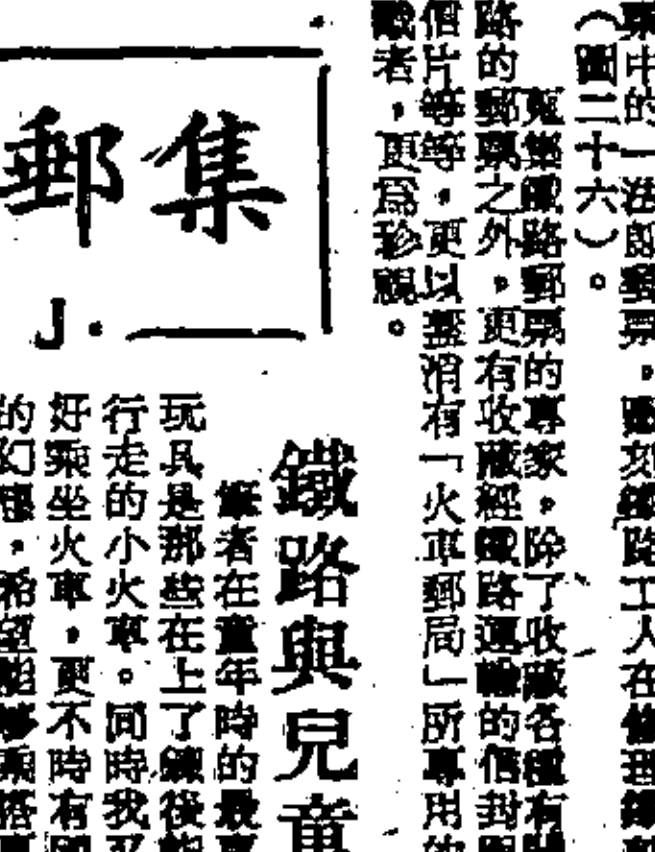 票中的一法郎郵票,圖刻鐵路工人在修理鐵
(圖二十六)。
蒐集鐵路郵票的專家,除了收藏各種有關
路的郵票之外,更有收藏經鐵路運輸的信封
個片等等,更以蓋銷有「火車郵局」所專用的
戳者,更爲珍視。
集郵
J.
鐵路與兒童
筆者在童年時的最
玩具是那些在上了鍊後能
行走的小火車。同時我又
好乘坐火車,更不時有
的幻想,希望能够乘搭